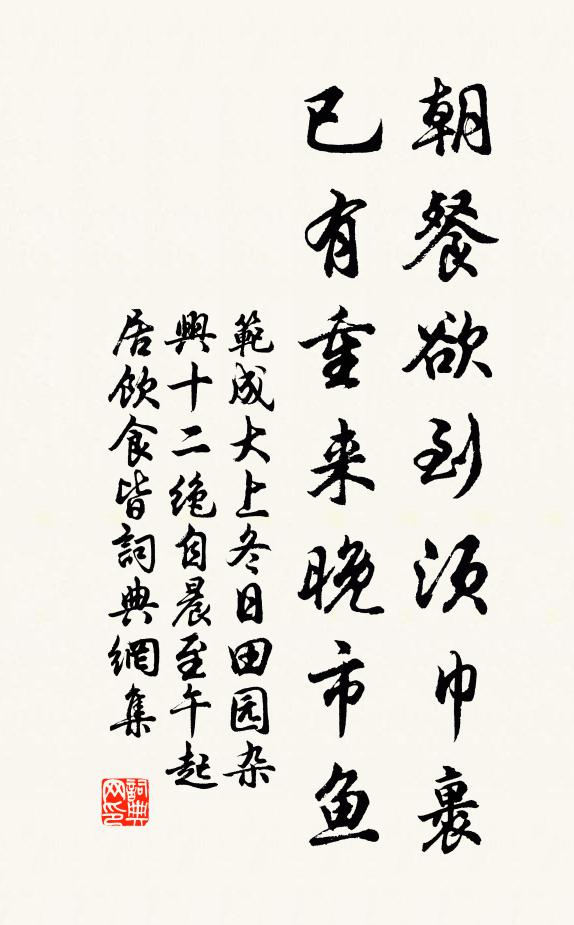 朝餐欲到须巾裹
已有重来晚市鱼
範成大上冬日田园杂
興十二绝自晨至午起
居飲食皆詞典網集
詞典网印